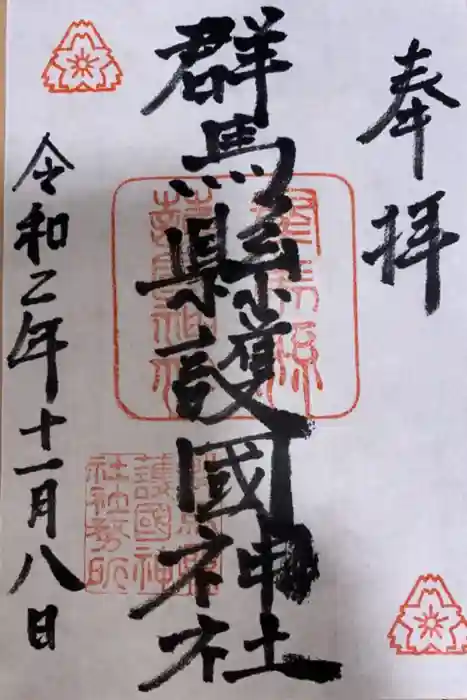 奉拝
群馬縣護國神社
令和二年十一月八日
群馬縣
護國神社
群馬縣
護國神
社社務所